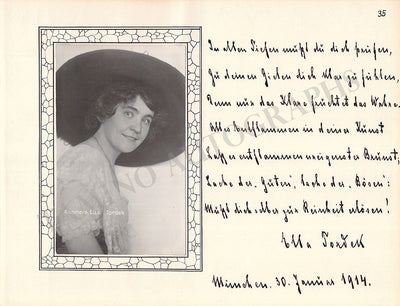 35
In allen Tiefen mußt du dich prüfen,
Zu deinen Zielen dich klar zu fühlen,
Denn nur das Klare fruchtet das Wahre.
Alles entflammen in deiner Kunst
Laß es entflammen
Lache der „Guten", lache der „Bösen":
Mußt dich selber zur Reinheit erlösen!
Ella Tordek
München. 30. Januar 1914.
Kammers. Ella Tordek
NO AUTOGRAPHS